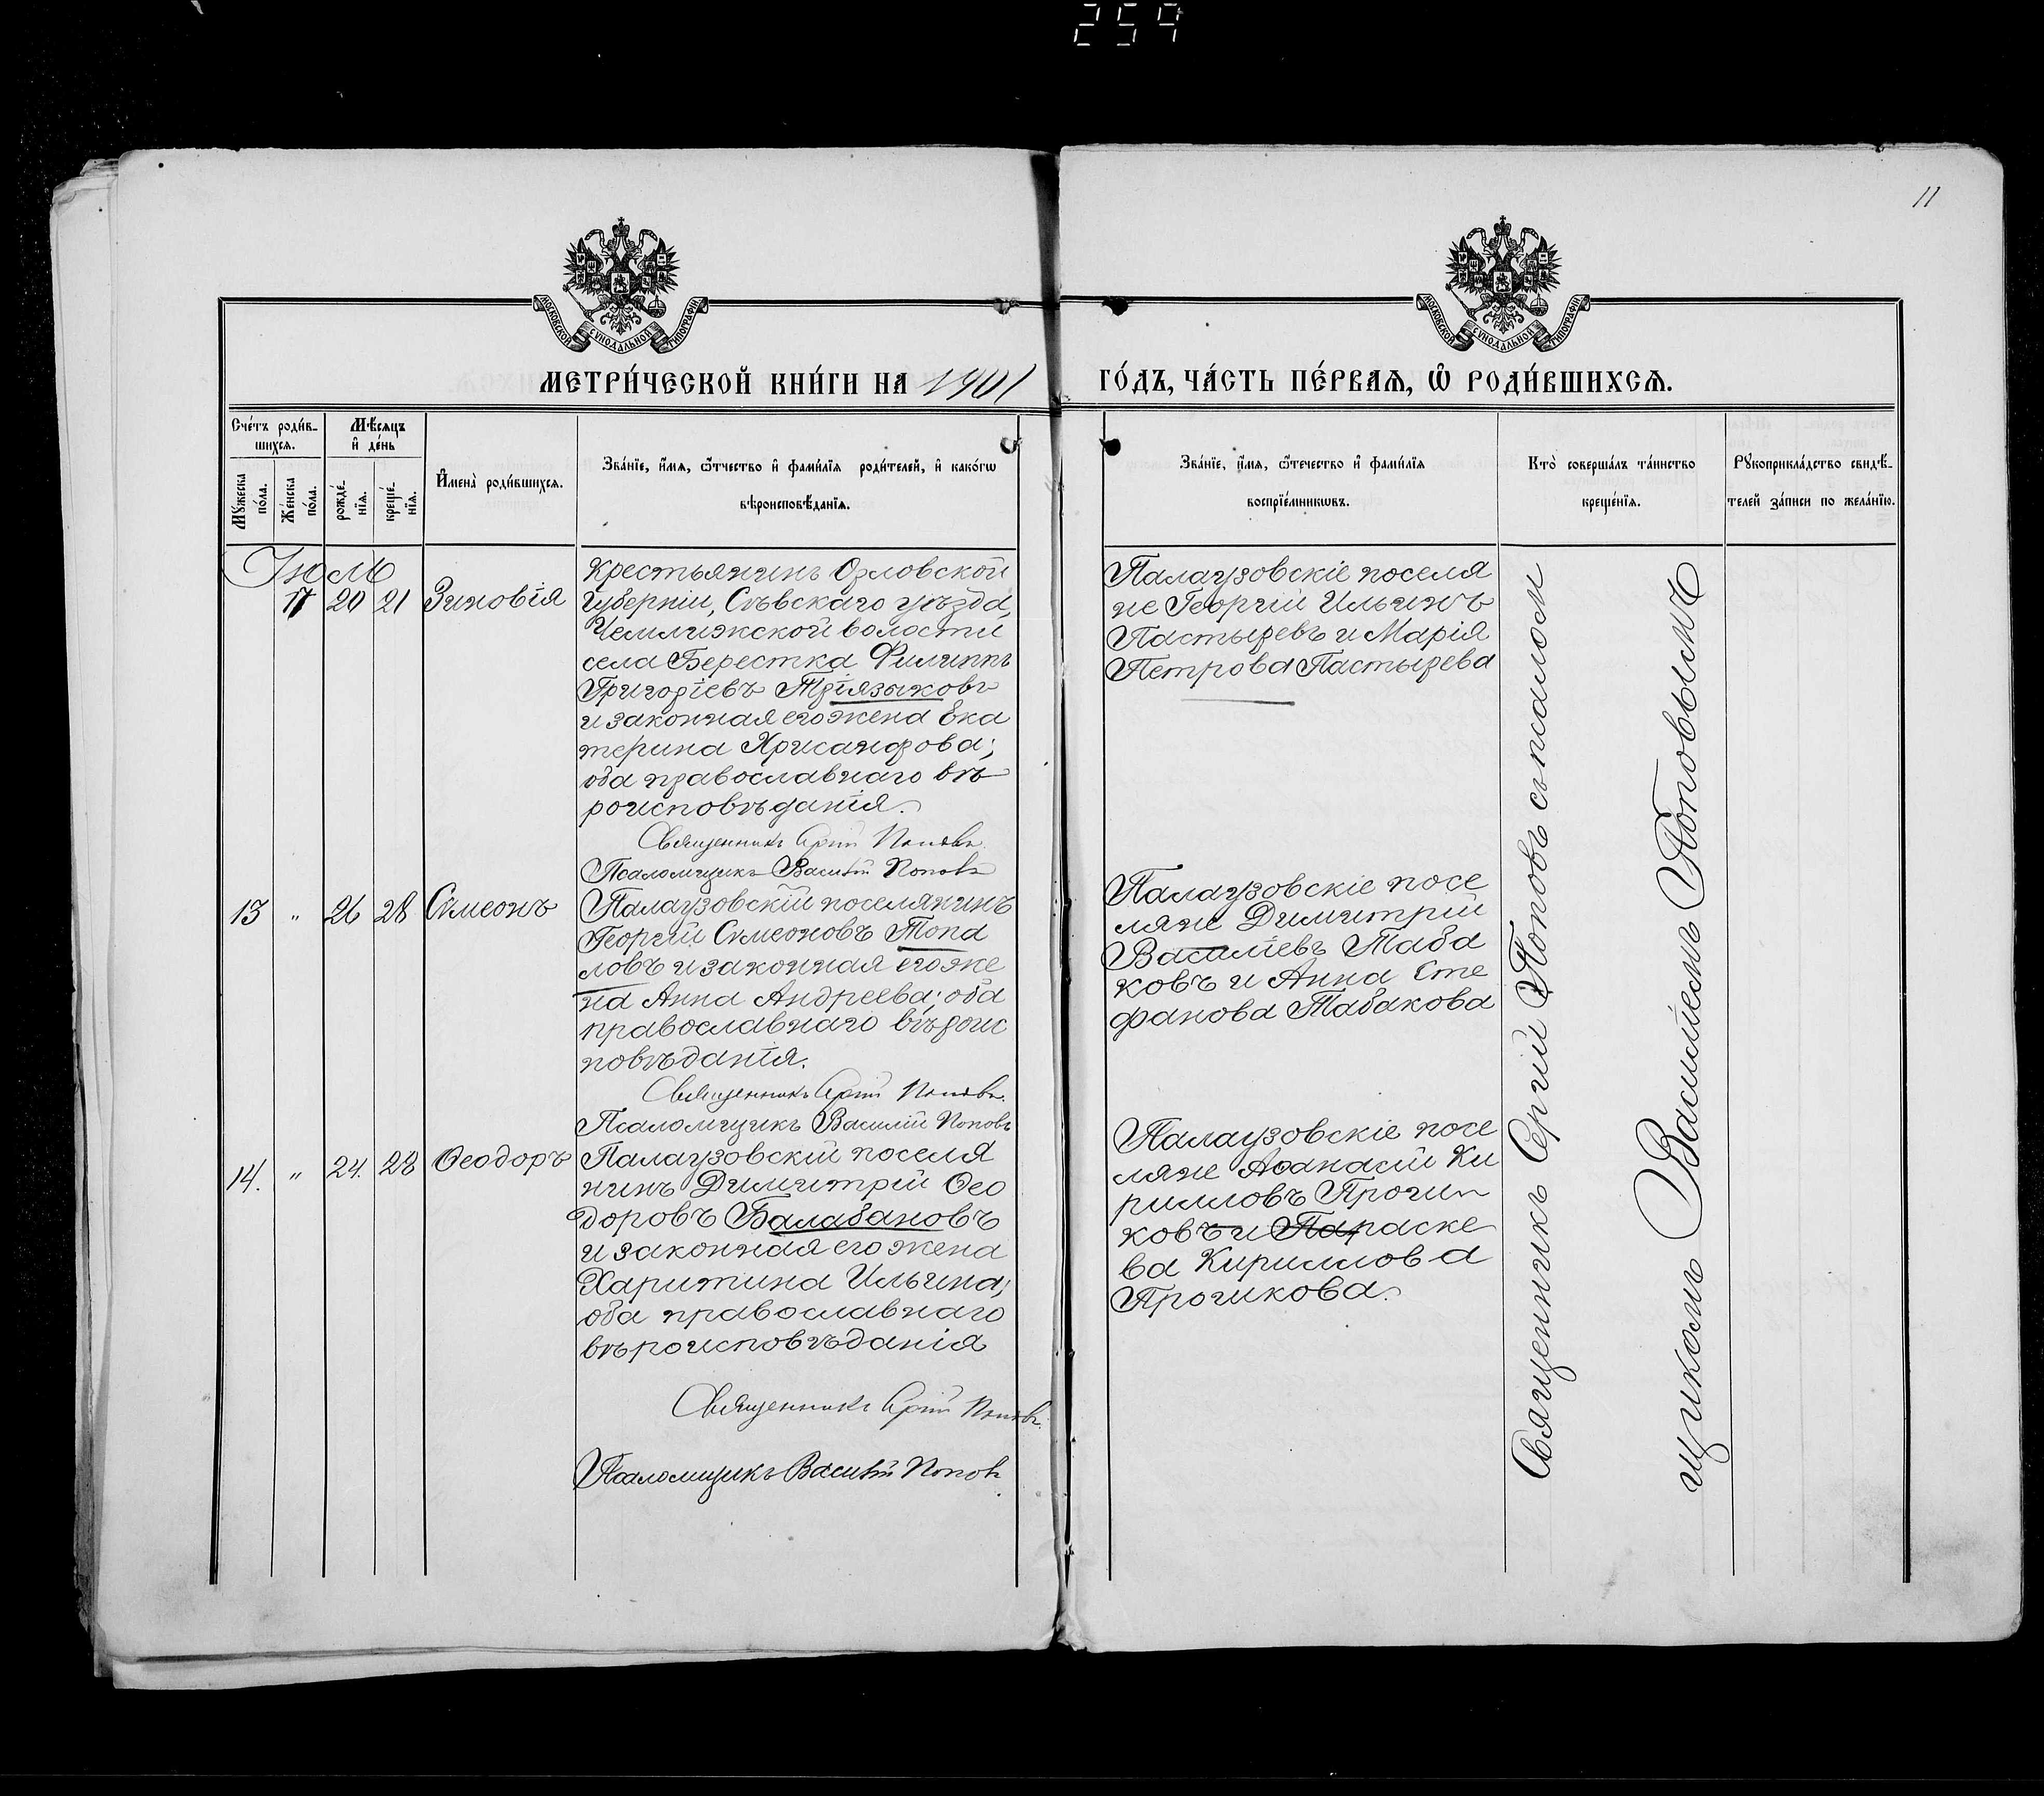 259
11
МОСКОВСКОЙ СѴНОДАЛЬНОЙ ТИПОГРАФІИ
МОСКОВСКОЙ СѴНОДАЛЬНОЙ ТИПОГРАФІИ
МЕТРИ́ЧЕСКОЙ КНИ́ГИ НА 1901
ГО́ДЪ, ЧА́СТЬ ПЕ́РВАѦ, Ѽ РОДИ́ВШИХСѦ.
Сче́тъ роди́в-
шихсѧ.
Мꙋжеска
по́ла.
Же́нска
по́ла.
Мѣ́сѧцъ
и҆ де́нь
рожде́-
нїѧ.
креще́-
нїѧ.
И҆мена̀ роди́вшихсѧ.
Зва́нїе, и҆́мѧ, ѻ҆́тчество и҆ фами́лїѧ роди́телей, и҆ како́гѡ
вѣроисповѣ́данїѧ.
Зва́нїе, и҆́мѧ, ѻ҆те́чество и҆ фами́лїѧ
воспрїе́мникѡвъ.
Кто̀ соверша́лъ та́инство
креще́нїѧ.
Рꙋкоприкла́дство свидѣ́-
телей за́писи по жела́нїю.
Іюль
11 20 21 Зиновія
Крестьянинъ Орловской
Губерніи, Сѣвскаго уѣзда,
Чемлижской волости
села Берестка Филиппъ
Григоріевъ Тріязыковъ
и законная его жена Ека
терина Хрисанфова;
оба православнаго вѣ
роисповѣданія.
Священникъ Сергій Поповъ.
Псаломщикъ Василій Поповъ
Палаузовскіе поселя
не Георгій Ильинъ
Пастыревъ и Марія
Петрова Пастырева
13 " 26 28 Симеонъ
Палаузовскій поселянинъ
Георгій Симеоновъ Топа
ловъ и законная его же
на Анна Андреева; оба
православнаго вѣроис
повѣданія.
Священникъ Сергій Поповъ.
Псаломщикъ Василій Поповъ
Палаузовскіе посе
ляне Димитрій
Василіевъ Таба
ковъ и Анна Сте
фанова Табакова
14. " 24. 28 Ѳеодоръ
Палаузовскій поселя
нинъ Димитрій Ѳео
доровъ Балабановъ
и законная его жена
Харитина Ильина;
оба православнаго
вѣроисповѣданія
Священникъ Сергій Поповъ.
Псаломщикъ Василій Поповъ
Палаузовскіе посе
ляне Аѳанасій Ки
рилловъ Прочи
ковъ и Параске
ва Кириллова
Прочикова.
Священникъ Сергій Поповъ съ псалом
щикомъ Василіемъ Поповымъ